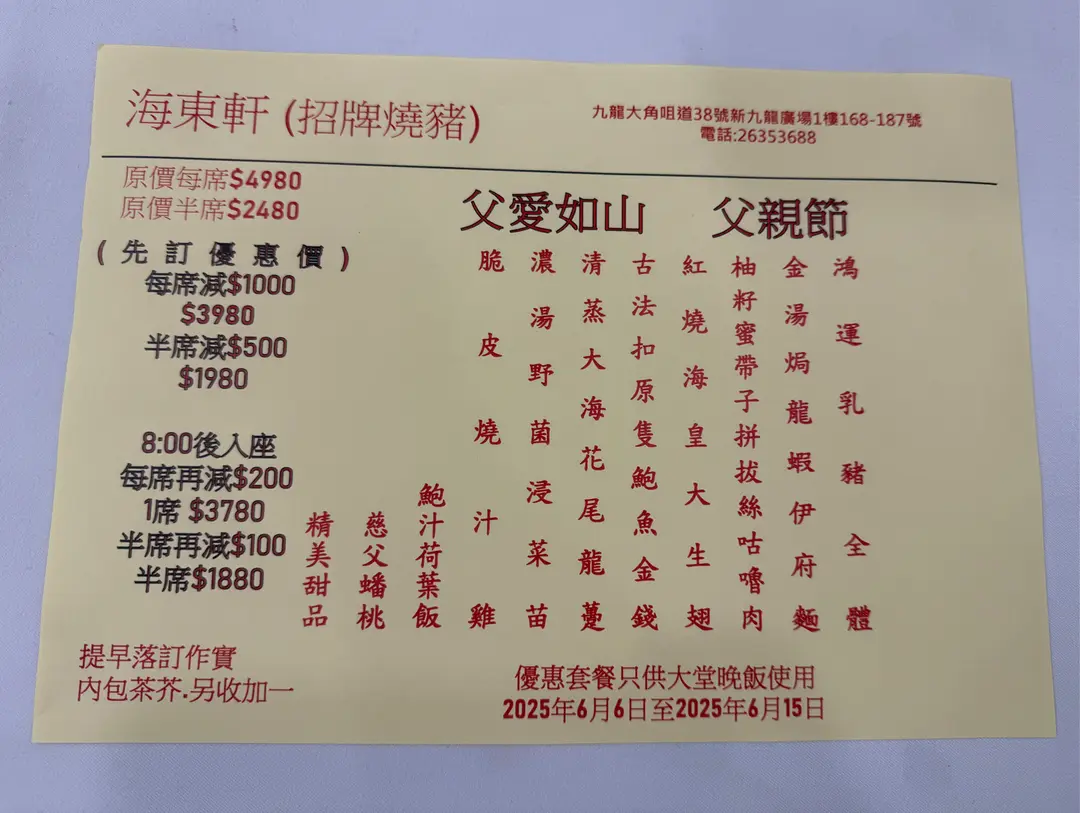 海東軒 (招牌燒豬)
九龍大角咀道38號新九龍廣場1樓168-187號
電話:26353688
原價每席$4980
原價半席$2480
(先訂優惠價)
每席減$1000
$3980
半席減$500
$1980
8:00後入座
每席再減$200
1席 $3780
半席再減$100
半席$1880
提早落訂作實
內包茶芥.另收加一
父愛如山 父親節
鴻運乳豬全體
金湯焗龍蝦伊府麵
柚籽蜜帶子拼拔絲咕嚕肉
紅燒海皇大生翅
古法扣原隻鮑魚金錢
清蒸大海花尾龍躉
濃湯野菌浸菜苗
脆皮燒汁雞
鮑汁荷葉飯
慈父蟠桃
精美甜品
優惠套餐只供大堂晚飯使用
2025年6月6日至2025年6月15日